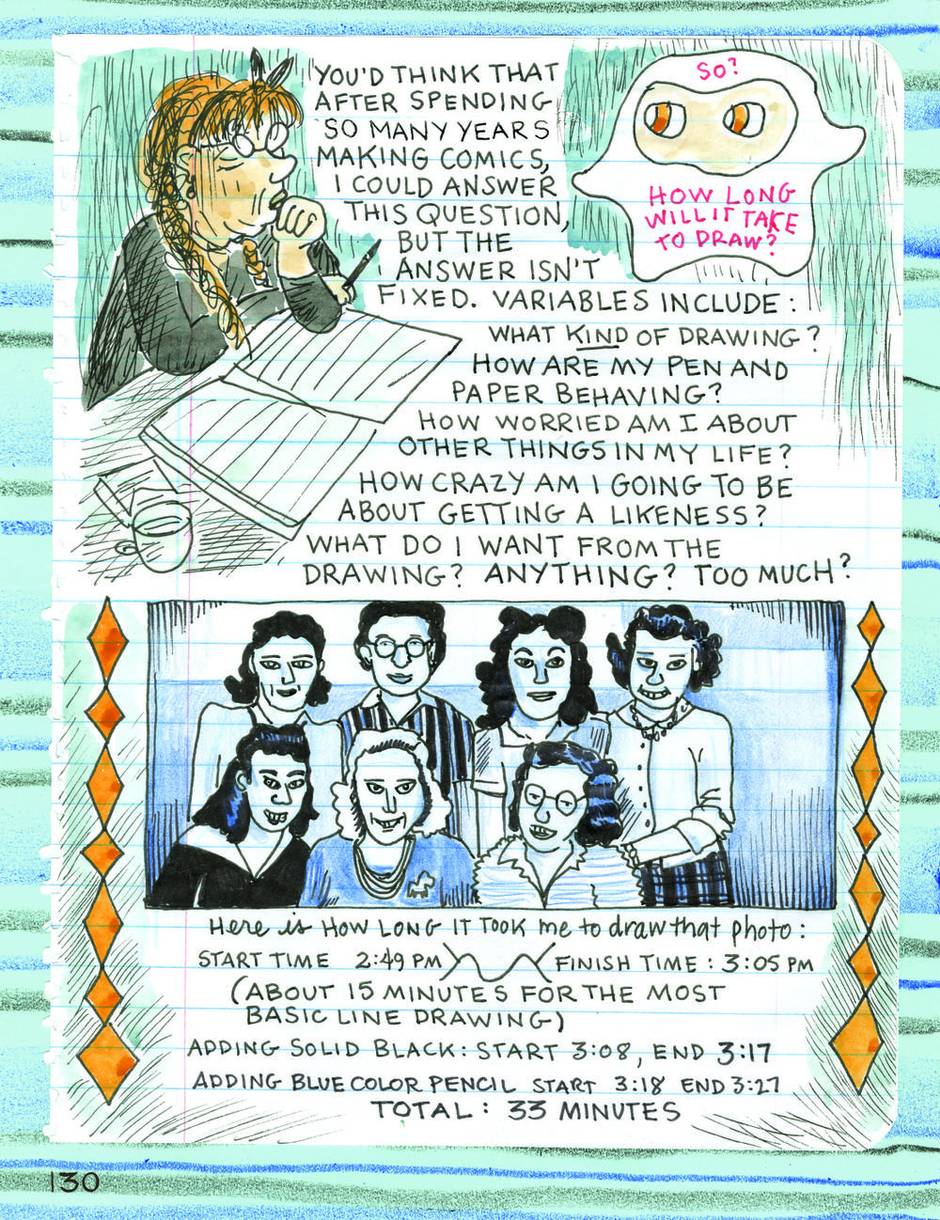 YOU'D THINK THAT
AFTER SPENDING
SO MANY YEARS
MAKING COMICS,
I COULD ANSWER
THIS QUESTION,
BUT THE
ANSWER ISN'T
FIXED. VARIABLES INCLUDE:
SO?
HOW LONG
WILL IT TAKE
TO DRAW?
WHAT KIND OF DRAWING?
HOW ARE MY PEN AND
PAPER BEHAVING?
HOW WORRIED AM I ABOUT
OTHER THINGS IN MY LIFE?
HOW CRAZY AM I GOING TO BE
ABOUT GETTING A LIKENESS?
WHAT DO I WANT FROM THE
DRAWING? ANYTHING? TOO MUCH?
Here is HOW LONG IT TOOK me to draw that photo:
START TIME 2:49 PM FINISH TIME: 3:05 PM
(ABOUT 15 MINUTES FOR THE MOST
BASIC LINE DRAWING)
ADDING SOLID BLACK: START 3:08, END 3:17
ADDING BLUE COLOR PENCIL START 3:18 END 3:27
TOTAL: 33 MINUTES
130